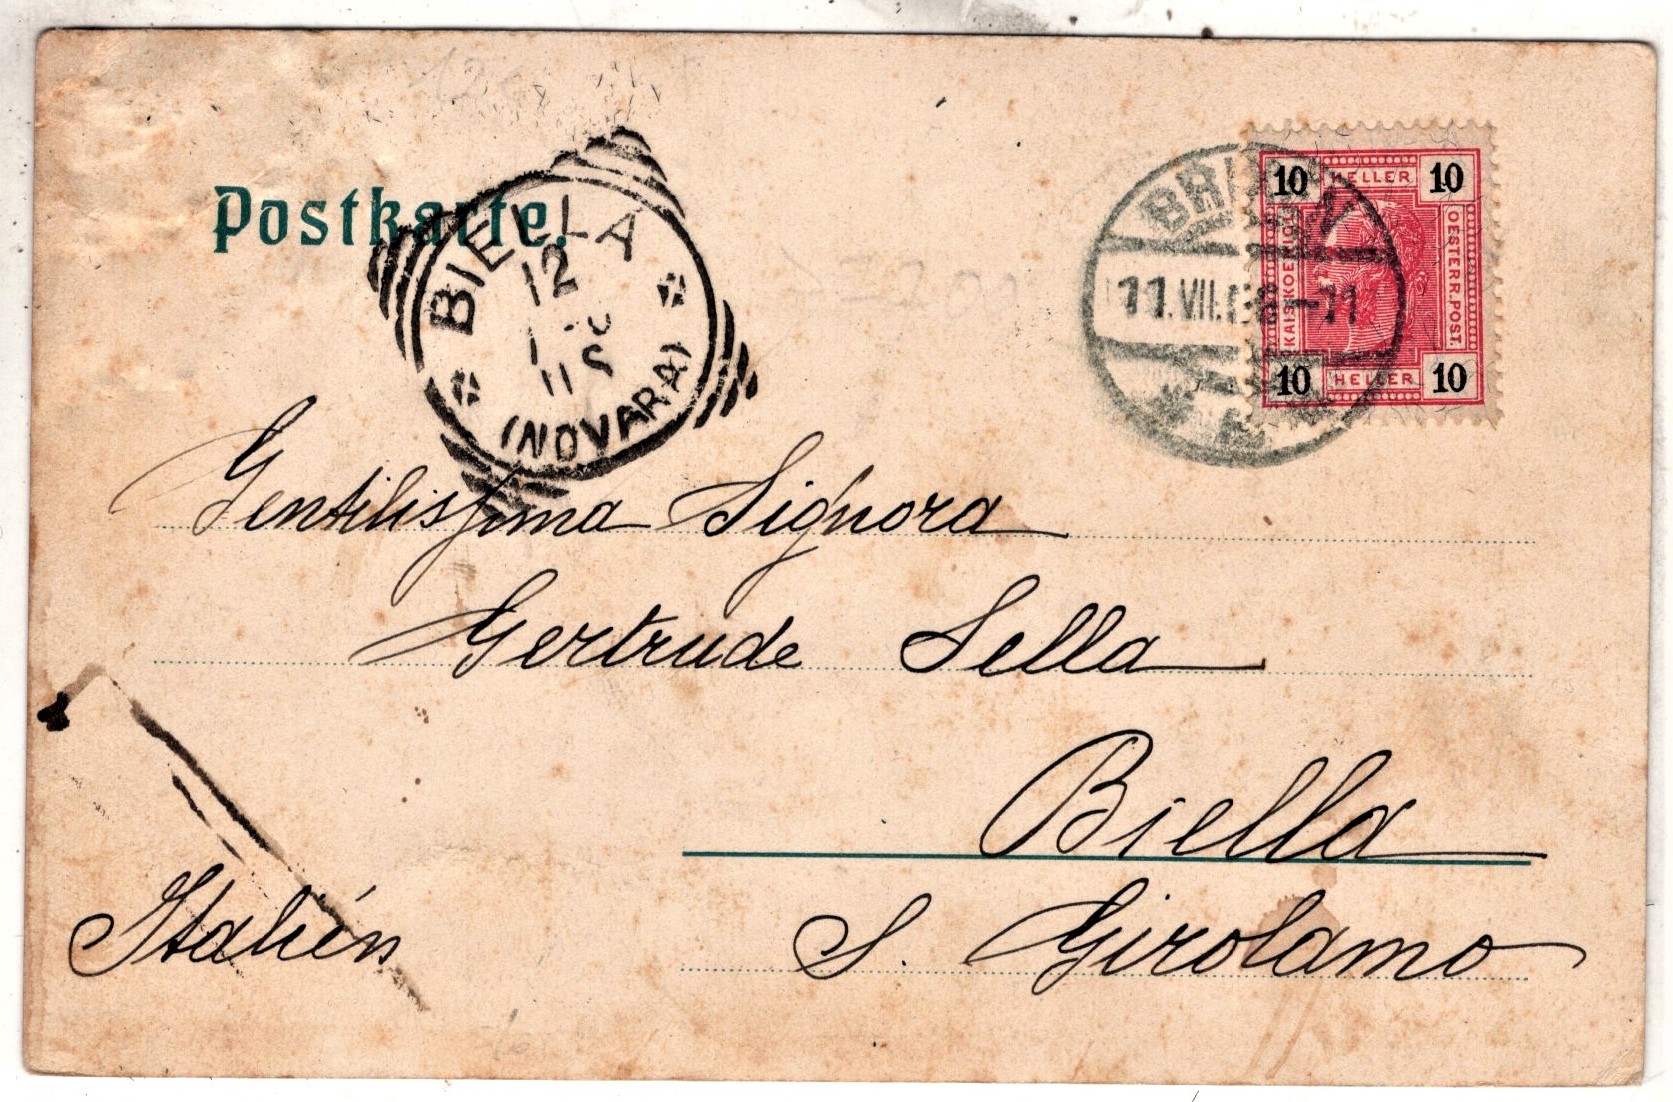 Postkarte.
BIELLA
12
11 S
(NOVARA)
11.VII.
-11
10 HELLER 10
OESTERR.POST.
10 HELLER 10
Gentilissima Signora
Gertrude Sella
Biella
S. Girolamo
Italien